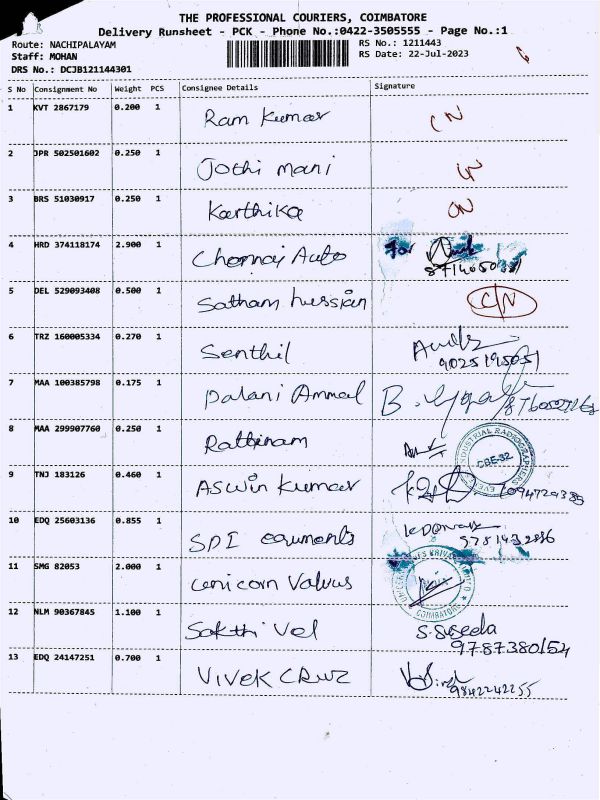 THE PROFESSIONAL COURIERS, COIMBATORE
Delivery Runsheet - PCK - Phone No.:0422-3505555 - Page No.:1
Route: NACHIPALAYAM RS No.: 1211443
Staff: MOHAN RS Date: 22-Jul-2023
DRS No.: DCJB121144301
S No Consignment No Weight PCS Consignee Details Signature
1 KVT 2867179 0.200 1 Ram Kumar CN
2 JPR 502501602 0.250 1 Jothi mani
3 BRS 51030917 0.250 1 Karthika CN
4 HRD 374118174 2.900 1 Chennai Auto For
5 DEL 529093408 0.500 1 Satham hussian C/N
6 TRZ 160005334 0.270 1 Senthil 9025195051
7 MAA 100385798 0.175 1 Palani Ammal B.
8 MAA 299907760 0.250 1 Rathinam
INDUSTRIAL RADIOGRAPHERS CBE-32
9 TNJ 183126 0.460 1 Aswin Kumar
10 EDQ 25603136 0.855 1 SPI
11 SMG 82053 2.000 1 unicorn Valvus
COIMBATORE
12 NLM 90367845 1.100 1 Sakthi Vel S. Suseela
9787380154
13 EDQ 24147251 0.700 1 VIVEK CRUZ 9842242255